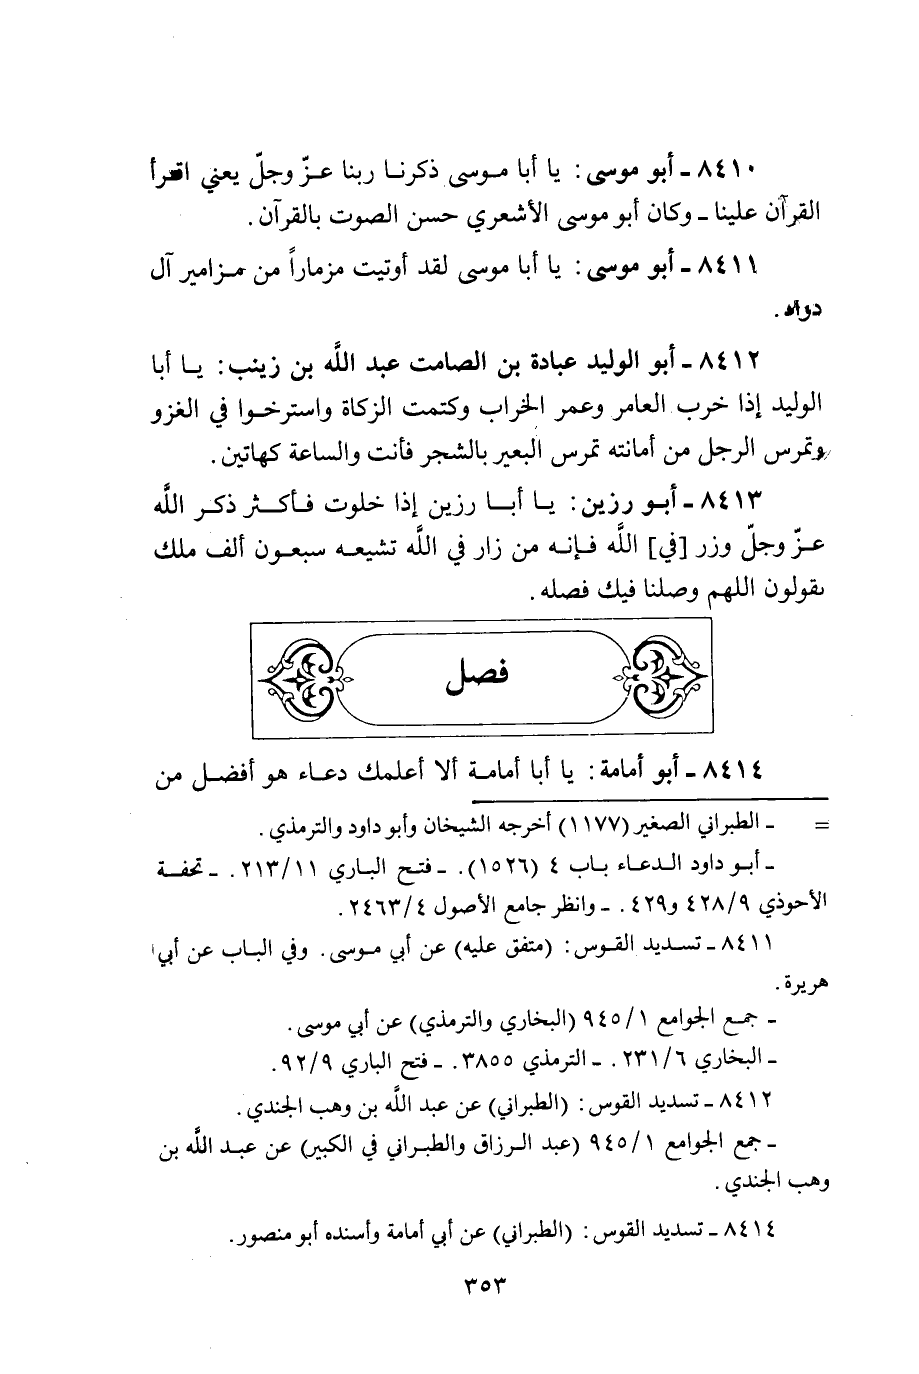 ٨٤١٠ - أبو موسى: يا أبا موسى ذكرنا ربنا عزّ وجلّ يعني اقرأ
القرآن علينا - وكان أبو موسى الأشعري حسن الصوت بالقرآن.
٨٤١١ - أبو موسى: يا أبا موسى لقد أوتيت مزماراً من مزامير آل
دواد.
٨٤١٢ - أبو الوليد عبادة بن الصامت عبد اللَّه بن زينب: يا أبا
الوليد إذا خرب العامر وعمر الخراب وكتمت الزكاة واسترخوا في الغزو
وتمرس الرجل من أمانته تمرس البعير بالشجر فأنت والساعة كهاتين.
٨٤١٣ - أبو رزين: يا أبا رزين إذا خلوت فأكثر ذكر اللَّه
عزّ وجلّ وزر [في] اللَّه فإنه من زار في اللَّه تشيعه سبعون ألف ملك
يقولون اللهم وصلنا فيك فصله.
فصل
٨٤١٤ - أبو أمامة: يا أبا أمامة ألا أعلمك دعاء هو أفضل من
= - الطبراني الصغير (١١٧٧) أخرجه الشيخان وأبو داود والترمذي.
- أبو داود الدعاء باب ٤ (١٥٢٦). - فتح الباري ٢١٣/١١. - تحفة
الأحوذي ٤٢٨/٩ و٤٢٩. - وانظر جامع الأصول ٢٤٦٣/٤.
٨٤١١ - تسديد القوس: (متفق عليه) عن أبي موسى. وفي الباب عن أبي
هريرة.
- جمع الجوامع ٩٤٥/١ (البخاري والترمذي) عن أبي موسى.
- البخاري ٢٣١/٦. - الترمذي ٣٨٥٥. - فتح الباري ٩٢/٩.
٨٤١٢ - تسديد القوس: (الطبراني) عن عبد اللَّه بن وهب الجندي.
- جمع الجوامع ٩٤٥/١ (عبد الرزاق والطبراني في الكبير) عن عبد اللَّه بن
وهب الجندي.
٨٤١٤ - تسديد القوس: (الطبراني) عن أبي أمامة وأسنده أبو منصور.
٣٥٣